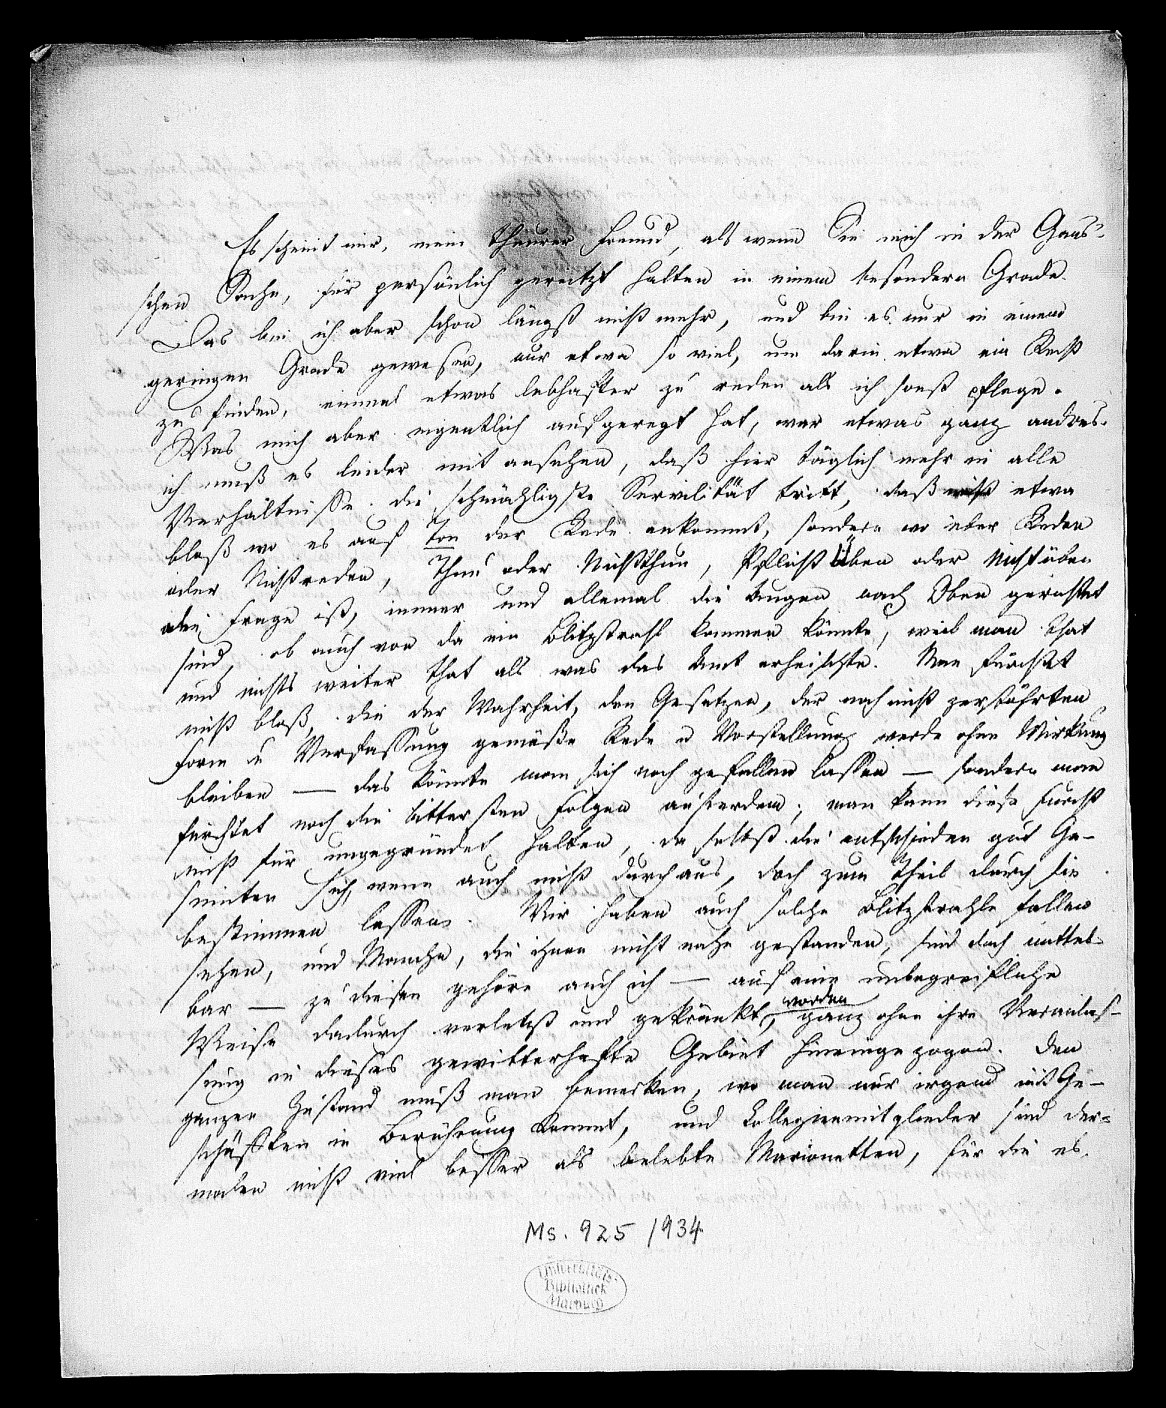 Es scheint mir, mein theurer Freund, als wenn Sie mich in der Gans-
schen Sache, für persönlich gereitzt halten in einem besondern Grade.
Das bin ich aber schon längst nicht mehr, und bin es nur in einem
geringen Grade gewesen, nur etwa so viel, um darin etwa ein Recht
zu finden, einmal etwas lebhafter zu reden als ich sonst pflege.
Was mich aber eigentlich aufgeregt hat, war etwas ganz andres.
ich muß es leider mit ansehen, daß hier täglich mehr in alle
Verhältnisse die schmächligste Servilität tritt, daß nicht etwa
bloß wo es auf Ton der Rede ankommt, sondern wo über Reden
oder Nichtreden, Thun oder Nichtthun, Pflicht Üben oder Nichtüben
die Frage ist, immer und allemal die Augen nach Oben gerichtet
sind, ob auch von da ein Blitzstrahl kommen könnte, weil man that
und nichts weiter that als was das Amt erheischte. Man fürchtet
nicht bloß, die der Wahrheit, den Gesetzen, der noch nicht zerstöhrten
Form u Verfassung gemäße Rede u Vorstellung werde ohne Wirkung
bleiben — das könnte man sich noch gefallen lassen — sondern man
fürchtet noch die bittersten Folgen außerdem; man kann diese Furcht
nicht für ungegründet halten, da selbst die entschieden gut Ge-
sinnten sich, wenn auch nicht durchaus, doch zum Theil durch sie
bestimmen lassen. Wir haben auch solche Blitzstrahle fallen
sehen, und Manche, die ihnen nicht nahe gestanden, sind doch mittel-
bar — zu diesen gehöre auch ich — auf eine unbegreifliche
Weise dadurch verletzt und gekränkt worden, ganz ohne ihre Veranlas-
sung in dieses gewitterhafte Gebiet hineingezogen. Den
ganzen Zustand muß man bemerken, wo man nur irgend mit Ge-
schäften in Berührung kommt, und Collegienmitglieder sind der-
malen nicht viel besser als belebte Marionetten, für die es
Ms. 925/934
Universitäts-
Bibliothek
Marburg